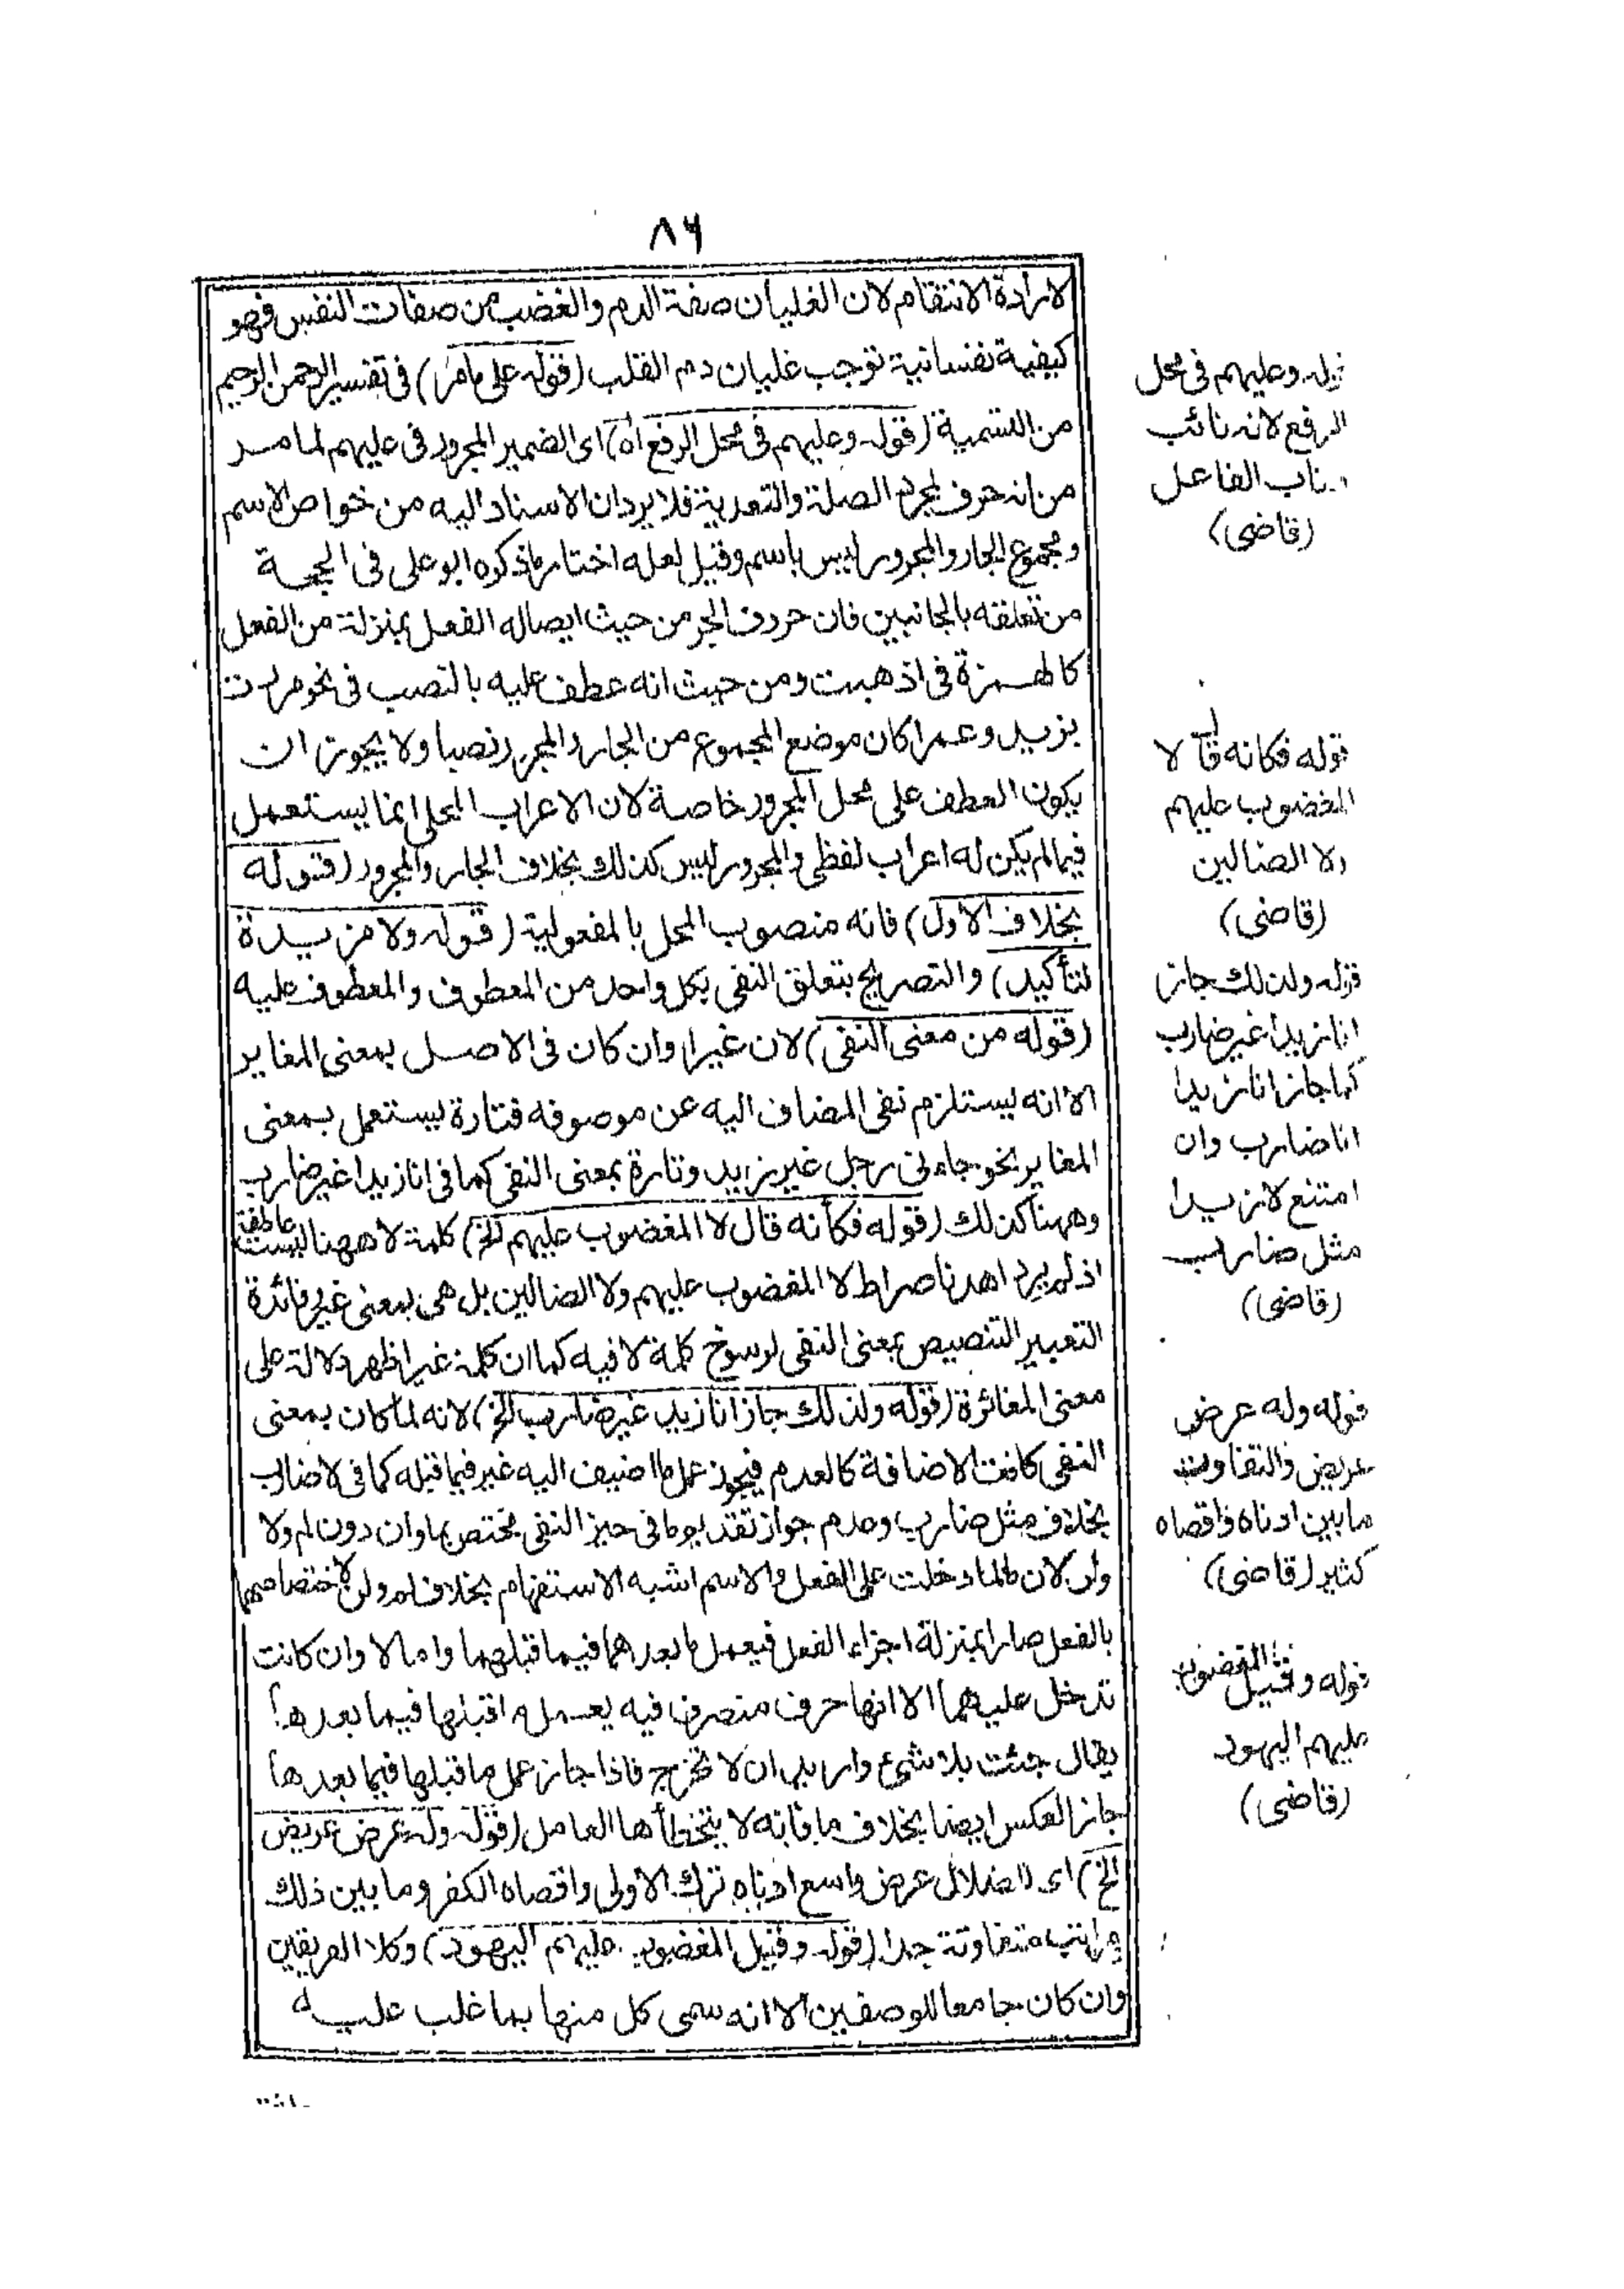 ٨٦
لارادة الانتقام لان الغليان صفة الدم والغضب من صفات النفس فهو
كيفية نفسانية توجب غليان دم القلب (قوله على ما مر) فى تفسير الرحمن الرحيم
من التسمية (قوله وعليهم فى محل الرفع اه) اى الضمير المجرور فى عليهم لما مر
من انه حرف لمجرد الصلة والتعدية فلا يرد ان الاسناد اليه من خواص الاسم
ومجموع الجار والمجرور ليس باسم وقيل لعله اختار ما ذكره ابو على فى الحجة
من تعلقه بالجانبين فان حروف الجر من حيث ايصاله الفعل بمنزلة من الفعل
كالهمزة فى اذهبت ومن حيث انه عطف عليه بالنصب فى نحو مررت
بزيد وعمرا كان موضع المجموع من الجار والمجرور نصبا ولا يجوز ان
يكون العطف على محل المجرور خاصة لان الاعراب المحلى انما يستعمل
فيما لم يكن له اعراب لفظى والمجرور ليس كذلك بخلاف الجار والمجرور (قوله
بخلاف الاول) فانه منصوب المحل بالمفعولية (قوله ولا مزيدة
لتأكيد) والتصريح بتعلق النفى بكل واحد من المعطوف والمعطوف عليه
(قوله من معنى النفى) لان غيرا وان كان فى الاصل بمعنى المغاير
الا انه يستلزم نفى المضاف اليه عن موصوفه فتارة يستعمل بمعنى
المغاير نحو جاءنى رجل غير زيد وتارة بمعنى النفى كما فى انا زيدا غير ضارب
وههنا كذلك (قوله فكأنه قال لا المغضوب عليهم الخ) كلمة لا ههنا ليست عاطفة
اذ لم يرد اهدنا صراط لا المغضوب عليهم ولا الضالين بل هى بمعنى غير وفائدة
التعبير التنصيص بمعنى النفى لرسوخ كلمة لا فيه كما ان كلمة غير اظهر دلالة على
معنى المغائرة (قوله ولذلك جاز انا زيدا غير ضارب الخ) لانه لما كان بمعنى
النفى كانت الاضافة كالعدم فيجوز عمل ما اضيف اليه غير فيما قبله كما فى لا ضارب
بخلاف مثل ضارب وعدم جواز تقديم ما فى حيز النفى مختص بما وان دون لم ولا
ولن لان ما لما دخلت على الفعل والاسم اشبه الاستفهام بخلاف لم ولن لاختصاصهما
بالفعل صارا بمنزلة اجزاء الفعل فيعمل ما بعدهما فيما قبلهما واما لا وان كانت
تدخل عليهما الا انها حرف متصرف فيه يعمل ما قبلها فيما بعدها
يقال جئت بلا شىء واريد ان لا تخرج فاذا جاز عمل ما قبلها فيما بعدها
جاز العكس ايضا بخلاف ما فانه لا يتخطأها العامل (قوله وله عرض عريض
الخ) اى للضلال عرض واسع ادناه ترك الاولى واقصاه الكفر وما بين ذلك
مراتب متفاوتة جدا (قوله وقيل المغضوب عليهم اليهود) وكلا الفريقين
وان كان جامعا للوصفين الا انه سمى كل منها بما غلب عليه
قوله وعليهم فى محل
الرفع لانه نائب
مناب الفاعل
(قاضى)
قوله فكانه قال لا
المغضوب عليهم
ولا الضالين
(قاضى)
قوله ولذلك جاز
انا زيدا غير ضارب
كما جاز انا زيدا
انا ضارب وان
امتنع لا زيدا
مثل ضارب
(قاضى)
قوله وله عرض
عريض والتفاوت
ما بين ادناه واقصاه
كثير (قاضى)
قوله وقيل المغضوب
عليهم اليهود
(قاضى)